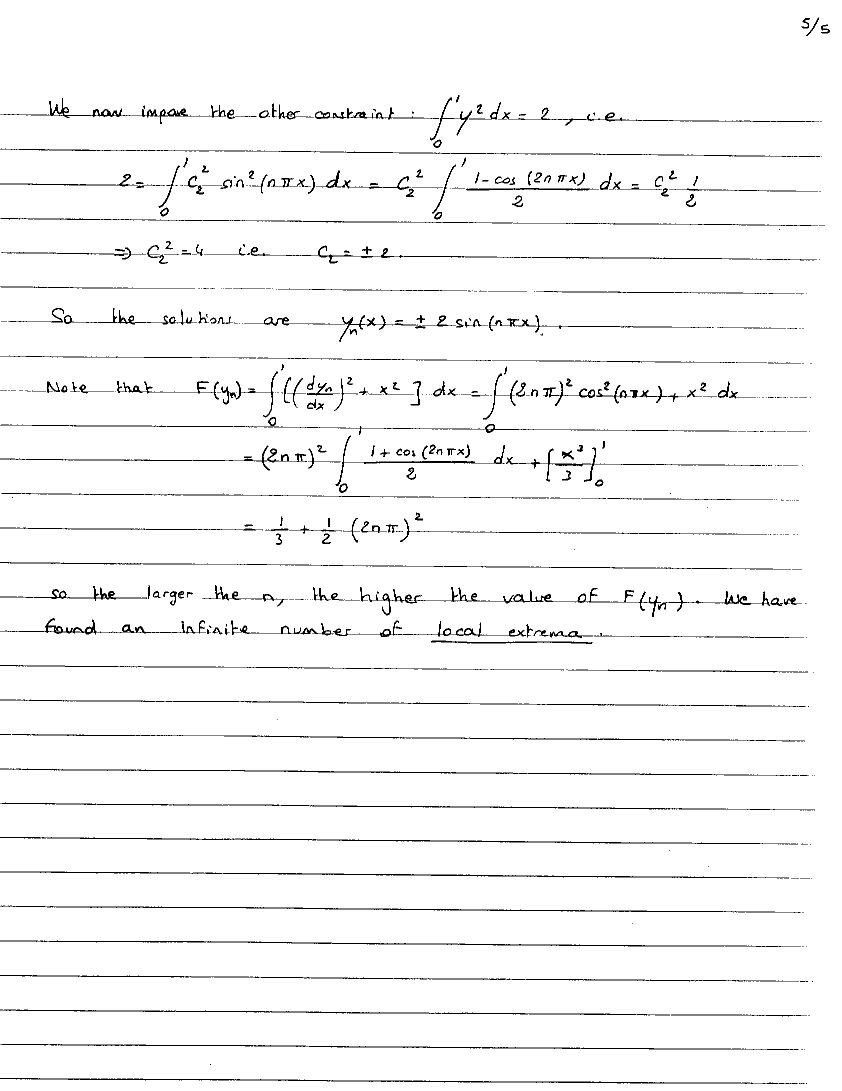 5/5
We now impose the other constraint : ∫₀¹ y² dx = 2 , i.e.
2 = ∫₀¹ C₂² sin² (nπx) dx = C₂² ∫₀¹ (1 - cos (2nπx))/2 dx = C₂² 1/2
⇒ C₂² = 4 i.e. C₂ = ± 2.
So the solutions are yₙ(x) = ± 2 sin (nπx) .
Note that F(yₙ) = ∫₀¹ [(dyₙ/dx)² + x² ] dx = ∫₀¹ (2nπ)² cos² (nπx) + x² dx
= (2nπ)² ∫₀¹ (1 + cos (2nπx))/2 dx + [x³/3]₀¹
= 1/3 + 1/2 (2nπ)²
so the larger the n, the higher the value of F(yₙ). We have
found an infinite number of local extrema.